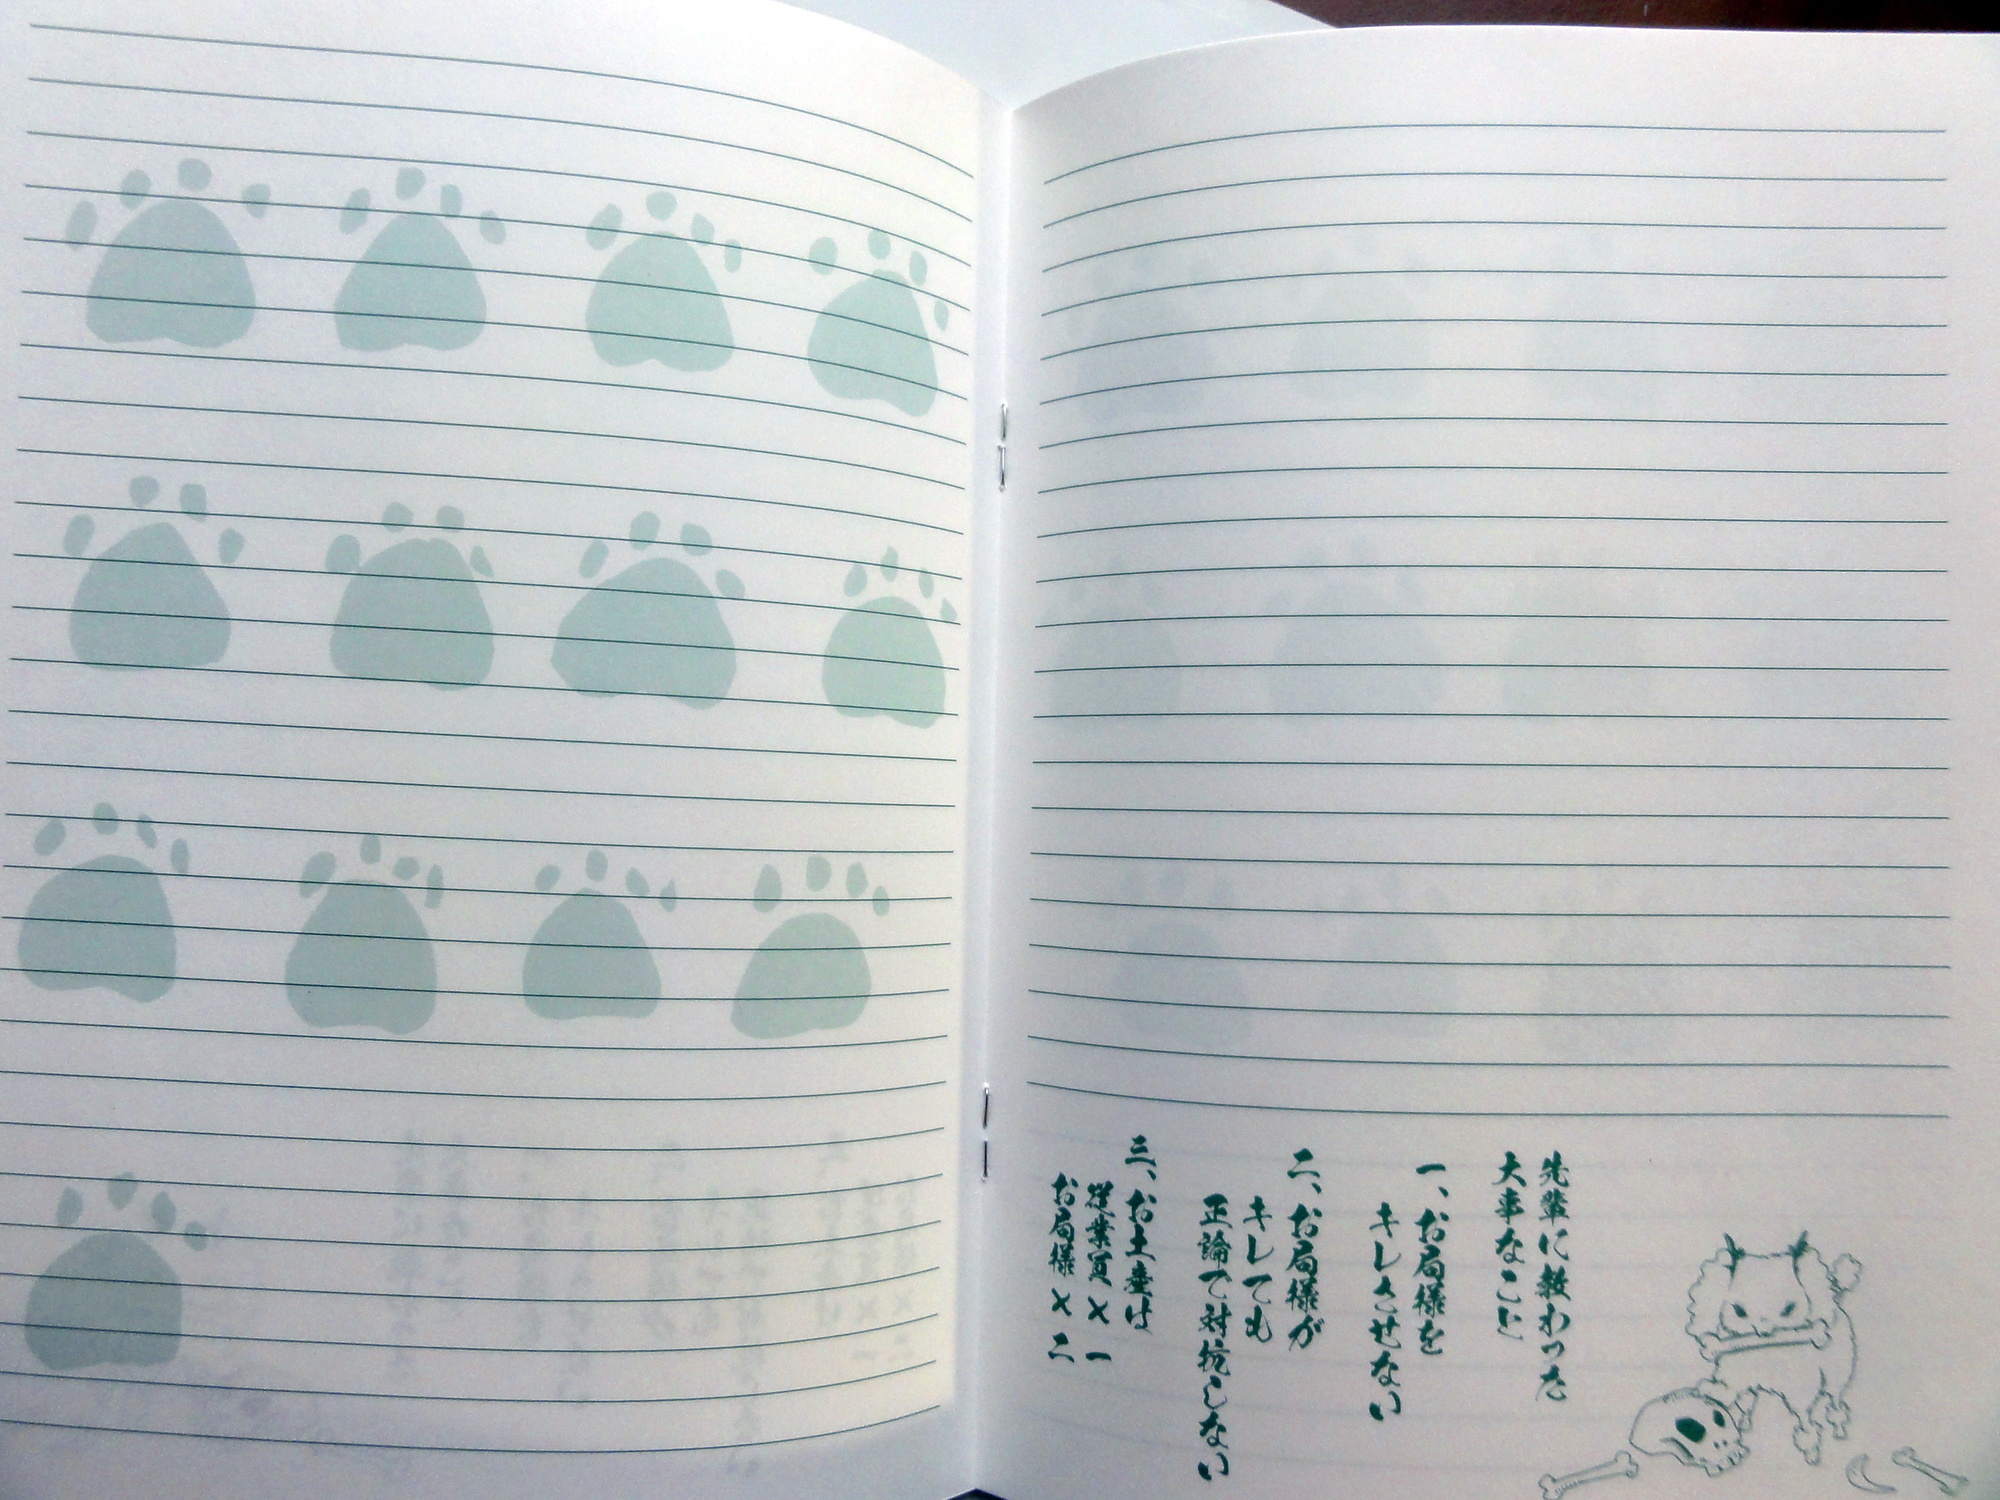 先輩に教わった
大事なこと
一、お局様を
キレさせない
二、お局様が
キレても
正論で対抗しない
三、お土産は
従業員×一
お局様×二